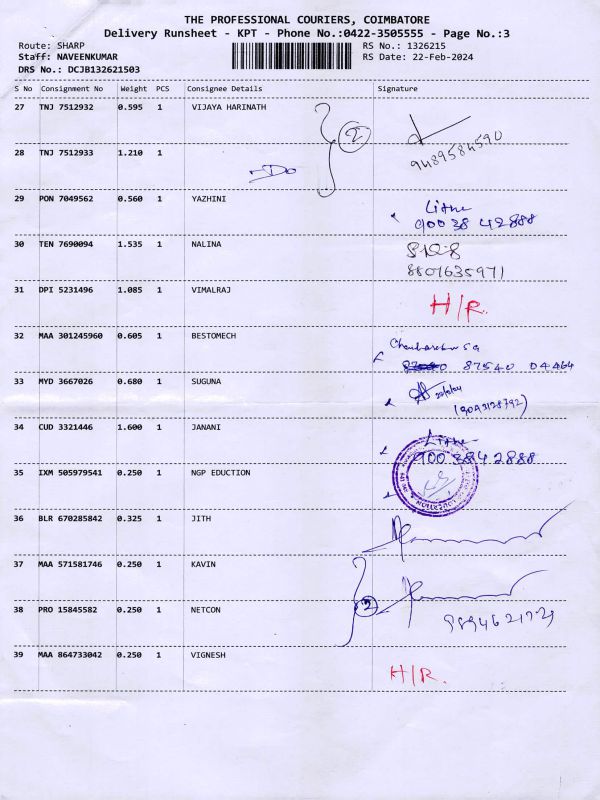 THE PROFESSIONAL COURIERS, COIMBATORE
Delivery Runsheet - KPT - Phone No.:0422-3505555 - Page No.:3
Route: SHARP RS No.: 1326215
Staff: NAVEENKUMAR RS Date: 22-Feb-2024
DRS No.: DCJB132621503
S No Consignment No Weight PCS Consignee Details Signature
27 TNJ 7512932 0.595 1 VIJAYA HARINATH
2
9489584590
28 TNJ 7512933 1.210 1
-Do
29 PON 7049562 0.560 1 YAZHINI
900 38 42888
30 TEN 7690094 1.535 1 NALINA
8801635971
31 DPI 5231496 1.085 1 VIMALRAJ H/R.
32 MAA 301245960 0.605 1 BESTOMECH
87540 04464
33 MYD 3667026 0.680 1 SUGUNA
34 CUD 3321446 1.600 1 JANANI
900 38 42888
35 IXM 505979541 0.250 1 NGP EDUCTION
36 BLR 670285842 0.325 1 JITH
37 MAA 571581746 0.250 1 KAVIN
2
38 PRO 15845582 0.250 1 NETCON
39 MAA 864733042 0.250 1 VIGNESH H/R.